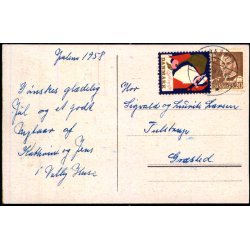 Julen 1958
I ønskes glædelig
Jul og et godt
Nytaar af
Kathrine og Jens
i Valby Huse
Hr
Sigvald og Laurids Larsen
Tulstrup
Græsted